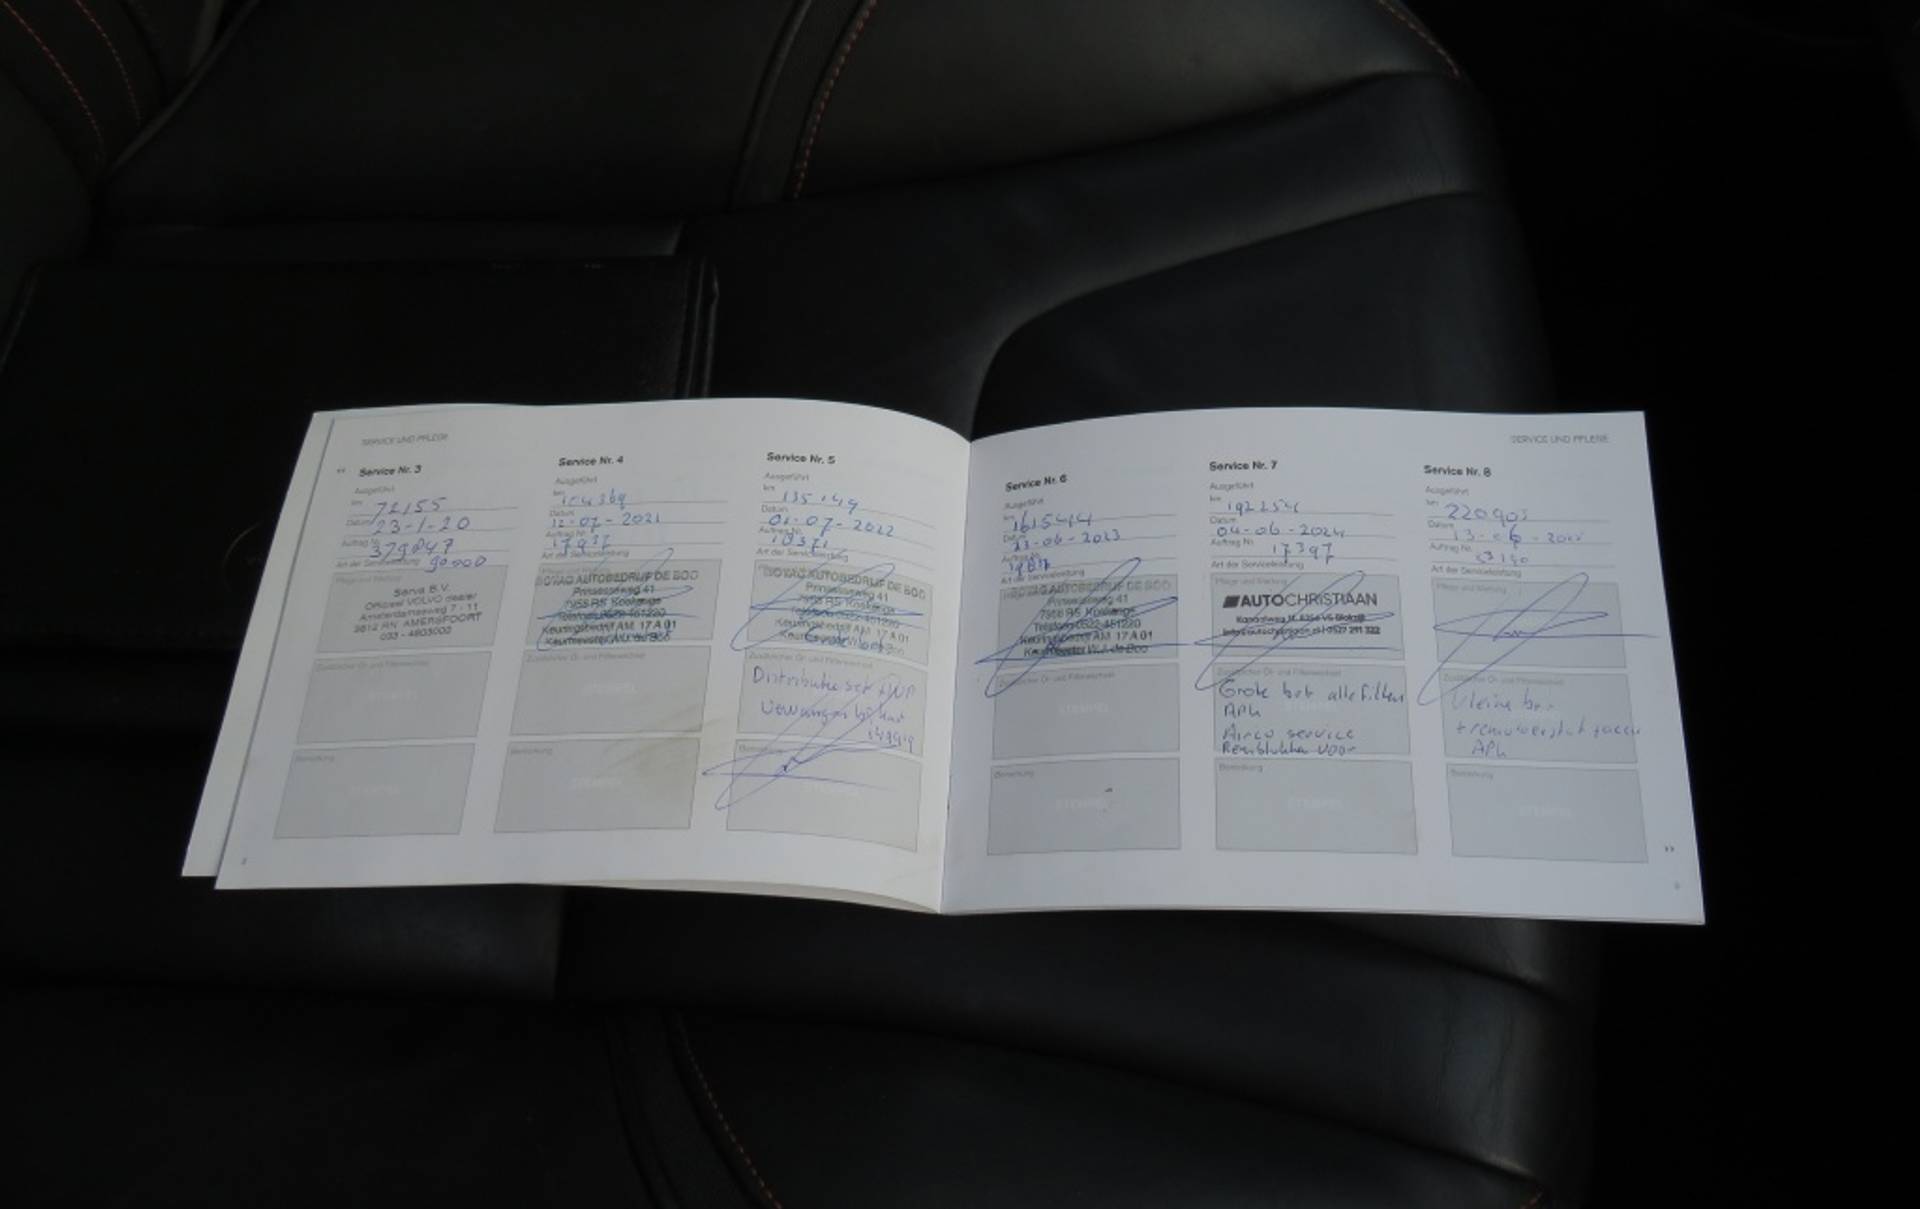 SERVICE UND PFLEGE
Service Nr. 3
Ausgeführt
km 72155
Datum 23-1-20
Auftrag Nr.
Art der Serviceleistung 90000
Pflege und Wartung
Serva B.V.
Officieel VOLVO dealer
Amsterdamseweg 7 - 11
3812 RN AMERSFOORT
033 - 4803000
Zusätzlicher Öl- und Filterwechsel
STEMPEL
Bemerkung
STEMPEL
Service Nr. 4
Ausgeführt
km 104369
Datum 12-07-2021
Auftrag Nr.
Art der Serviceleistung
BOVAG AUTOBEDRIJF DE BOO
Prinsesseweg 41
7955 RS Koekange
Telefoon 0522-451220
Keuringsbedrijf AM 17 A 01
Keurmeester W.J. de Boo
Zusätzlicher Öl- und Filterwechsel
STEMPEL
Bemerkung
Service Nr. 5
Ausgeführt
km 135149
Datum 01-07-2022
Auftrag Nr. 18371
Art der Serviceleistung
BOVAG AUTOBEDRIJF DE BOO
Prinsesseweg 41
7955 RS Koekange
Telefoon 0522-451220
Keuringsbedrijf AM 17 A 01
Zusätzlicher Öl- und Filterwechsel
Distributieset + WP
Bemerkung
Service Nr. 6
Ausgeführt
km 161544
Datum 23-06-2023
Art der Serviceleistung
BOVAG AUTOBEDRIJF DE BOO
Prinsesseweg 41
7955 RS Koekange
Telefoon 0522-451220
Keuringsbedrijf AM 17 A 01
Keurmeester W.J. de Boo
Zusätzlicher Öl- und Filterwechsel
Bemerkung
STEMPEL
SERVICE UND PFLEGE
Service Nr. 7
Ausgeführt
km 192254
Datum 04-06-2024
Auftrag Nr. 17397
Art der Serviceleistung
Pflege und Wartung
AUTOCHRISTIAAN
Zusätzlicher Öl- und Filterwechsel
Grote beurt alle filters
APK
Airco service
Remblokken voor
Bemerkung
STEMPEL
Service Nr. 8
Ausgeführt
km 220903
Datum
Auftrag Nr.
Art der Serviceleistung
Pflege und Wartung
Zusätzlicher Öl- und Filterwechsel
Kleine
APK
Bemerkung
STEMPEL